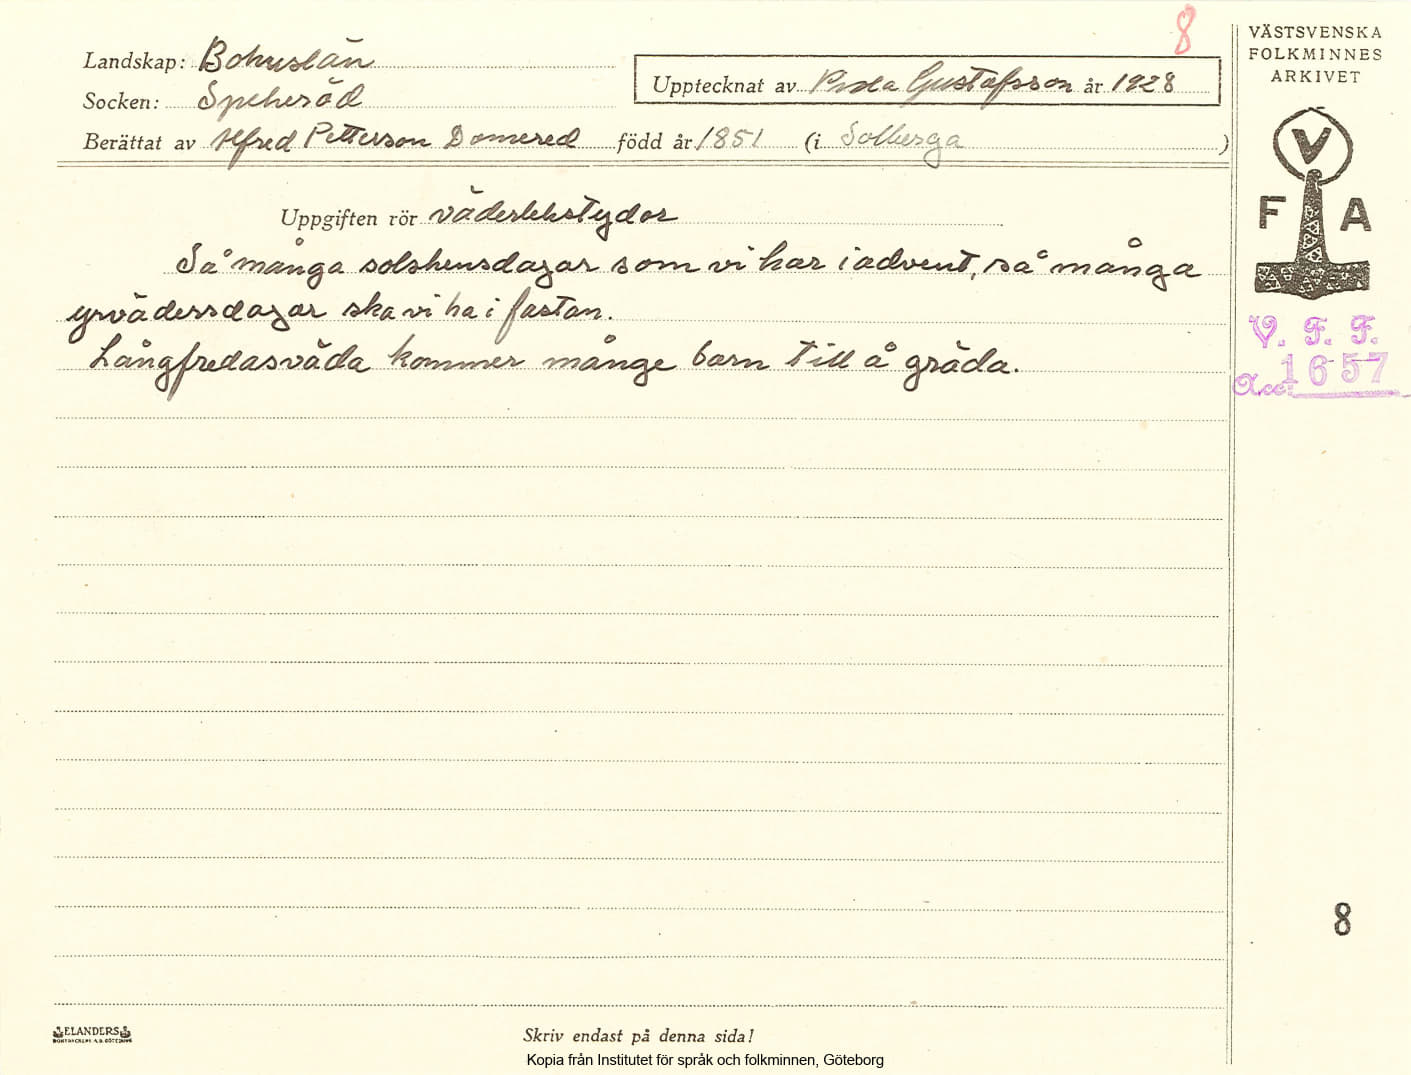 8
VÄSTSVENSKA
FOLKMINNES
ARKIVET
Landskap: Bohuslän
Upptecknat av Gustafsson år 1928
Socken: Spekeröd
Berättat av Alfred Petterson Domered född år 1851 (i Solberga )
V
F A
Uppgiften rör väderlekstydor
Så många solskensdagar som vi har i advent, så många
yrvädersdagar ska vi ha i fastan.
Långfredasväda kommer månge barn till å gräda.
V. F. F.
Acc. 1657
8
ELANDERS
Skriv endast på denna sida!
Kopia från Institutet för språk och folkminnen, Göteborg